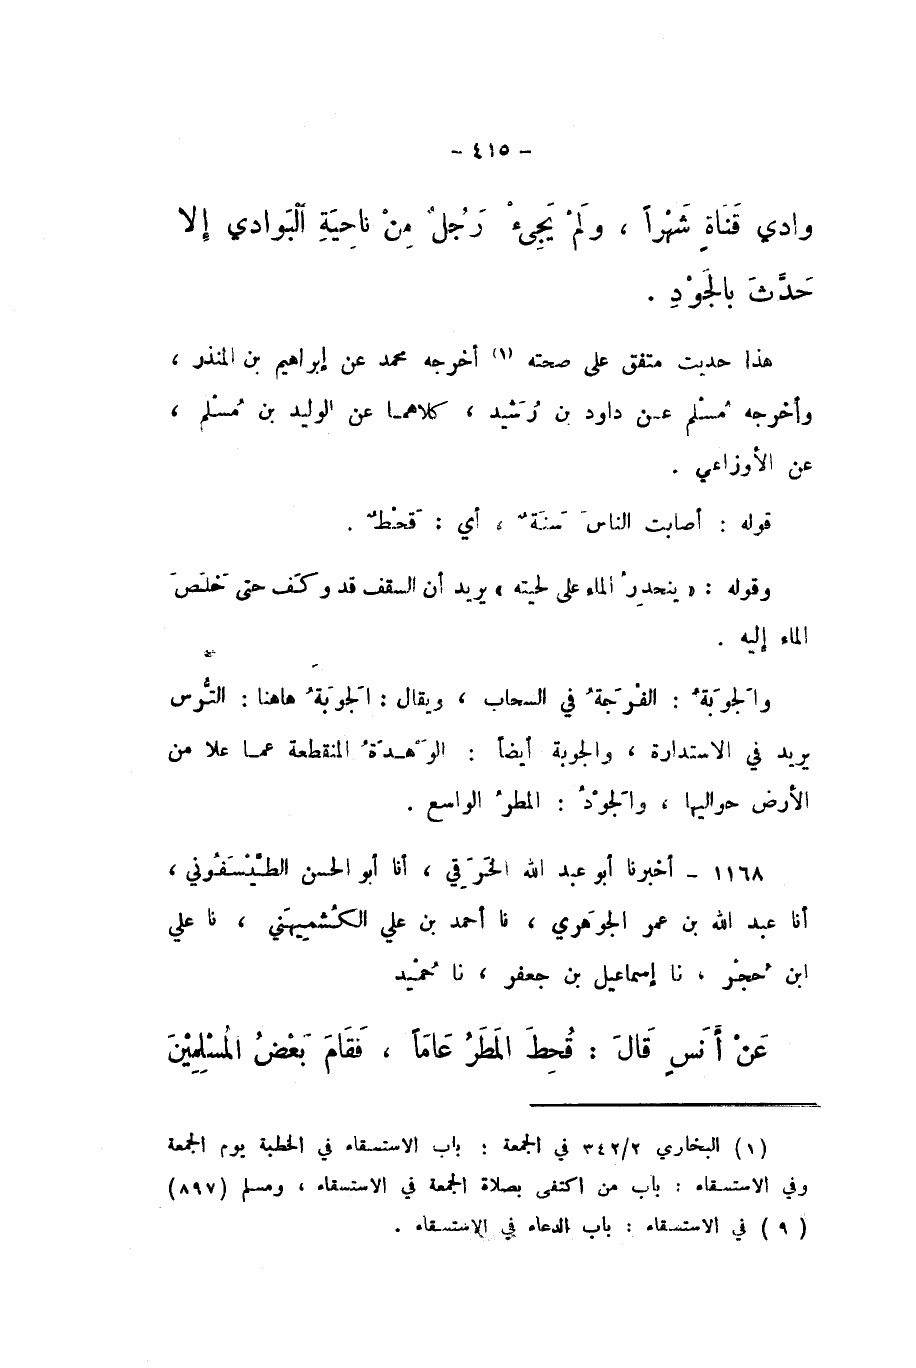 - ٤١٥ -
وادي قَنَاةٍ شَهْراً ، ولَمْ يَجِيءْ رَجُلٌ مِنْ ناحِيَةِ اَلْبَوادي إلا
حَدَّثَ بالجَوْدِ .
هذا حديث متفق على صحته (١) أخرجه محمد عن إبراهيم بن المنذر ،
وأخرجه مُسْلم عن داود بن رُشَيد ، كلاهما عن الوليد بن مُسْلم ،
عن الأوزاعي .
قوله : أصابت الناسَ سَنَةٌ ، أي : قَحْطٌ .
وقوله : « ينحدرُ الماء على لحيته » يريد أن السقف قد وكَف حتى خَلَصَ
الماء إليه .
والجَوبَةُ : الفُرجَةُ في السحاب ، ويقال : الجَوبَةُ هاهنا : التُّرس
يريد في الاستدارة ، والجوبة أيضاً : الوَهْدَةُ المنقطعة عما علا من
الأرض حواليها ، والجَوْدُ : المطرُ الواسع .
١١٦٨ – أخبرنا أبو عبد الله الخَرَقي ، أنا أبو الحسن الطَّيْسَفُوني ،
أنا عبد الله بن عمر الجوهَري ، نا أحمد بن علي الكُشْمِيهَني ، نا علي
ابن حُجْر ، نا إسماعيل بن جعفر ، نا حُمَيْد
عَنْ أَنَسٍ قَالَ : قُحِطَ المَطَرُ عَامَاً ، فَقَامَ بَعْضُ المُسْلِمِيْنَ
(١) البخاري ٣٤٢/٢ في الجمعة : باب الاستسقاء في الخطبة يوم الجمعة
وفي الاستسقاء : باب من اكتفى بصلاة الجمعة في الاستسقاء ، ومسلم (٨٩٧)
( ٩ ) في الاستسقاء : باب الدعاء في الاستسقاء .